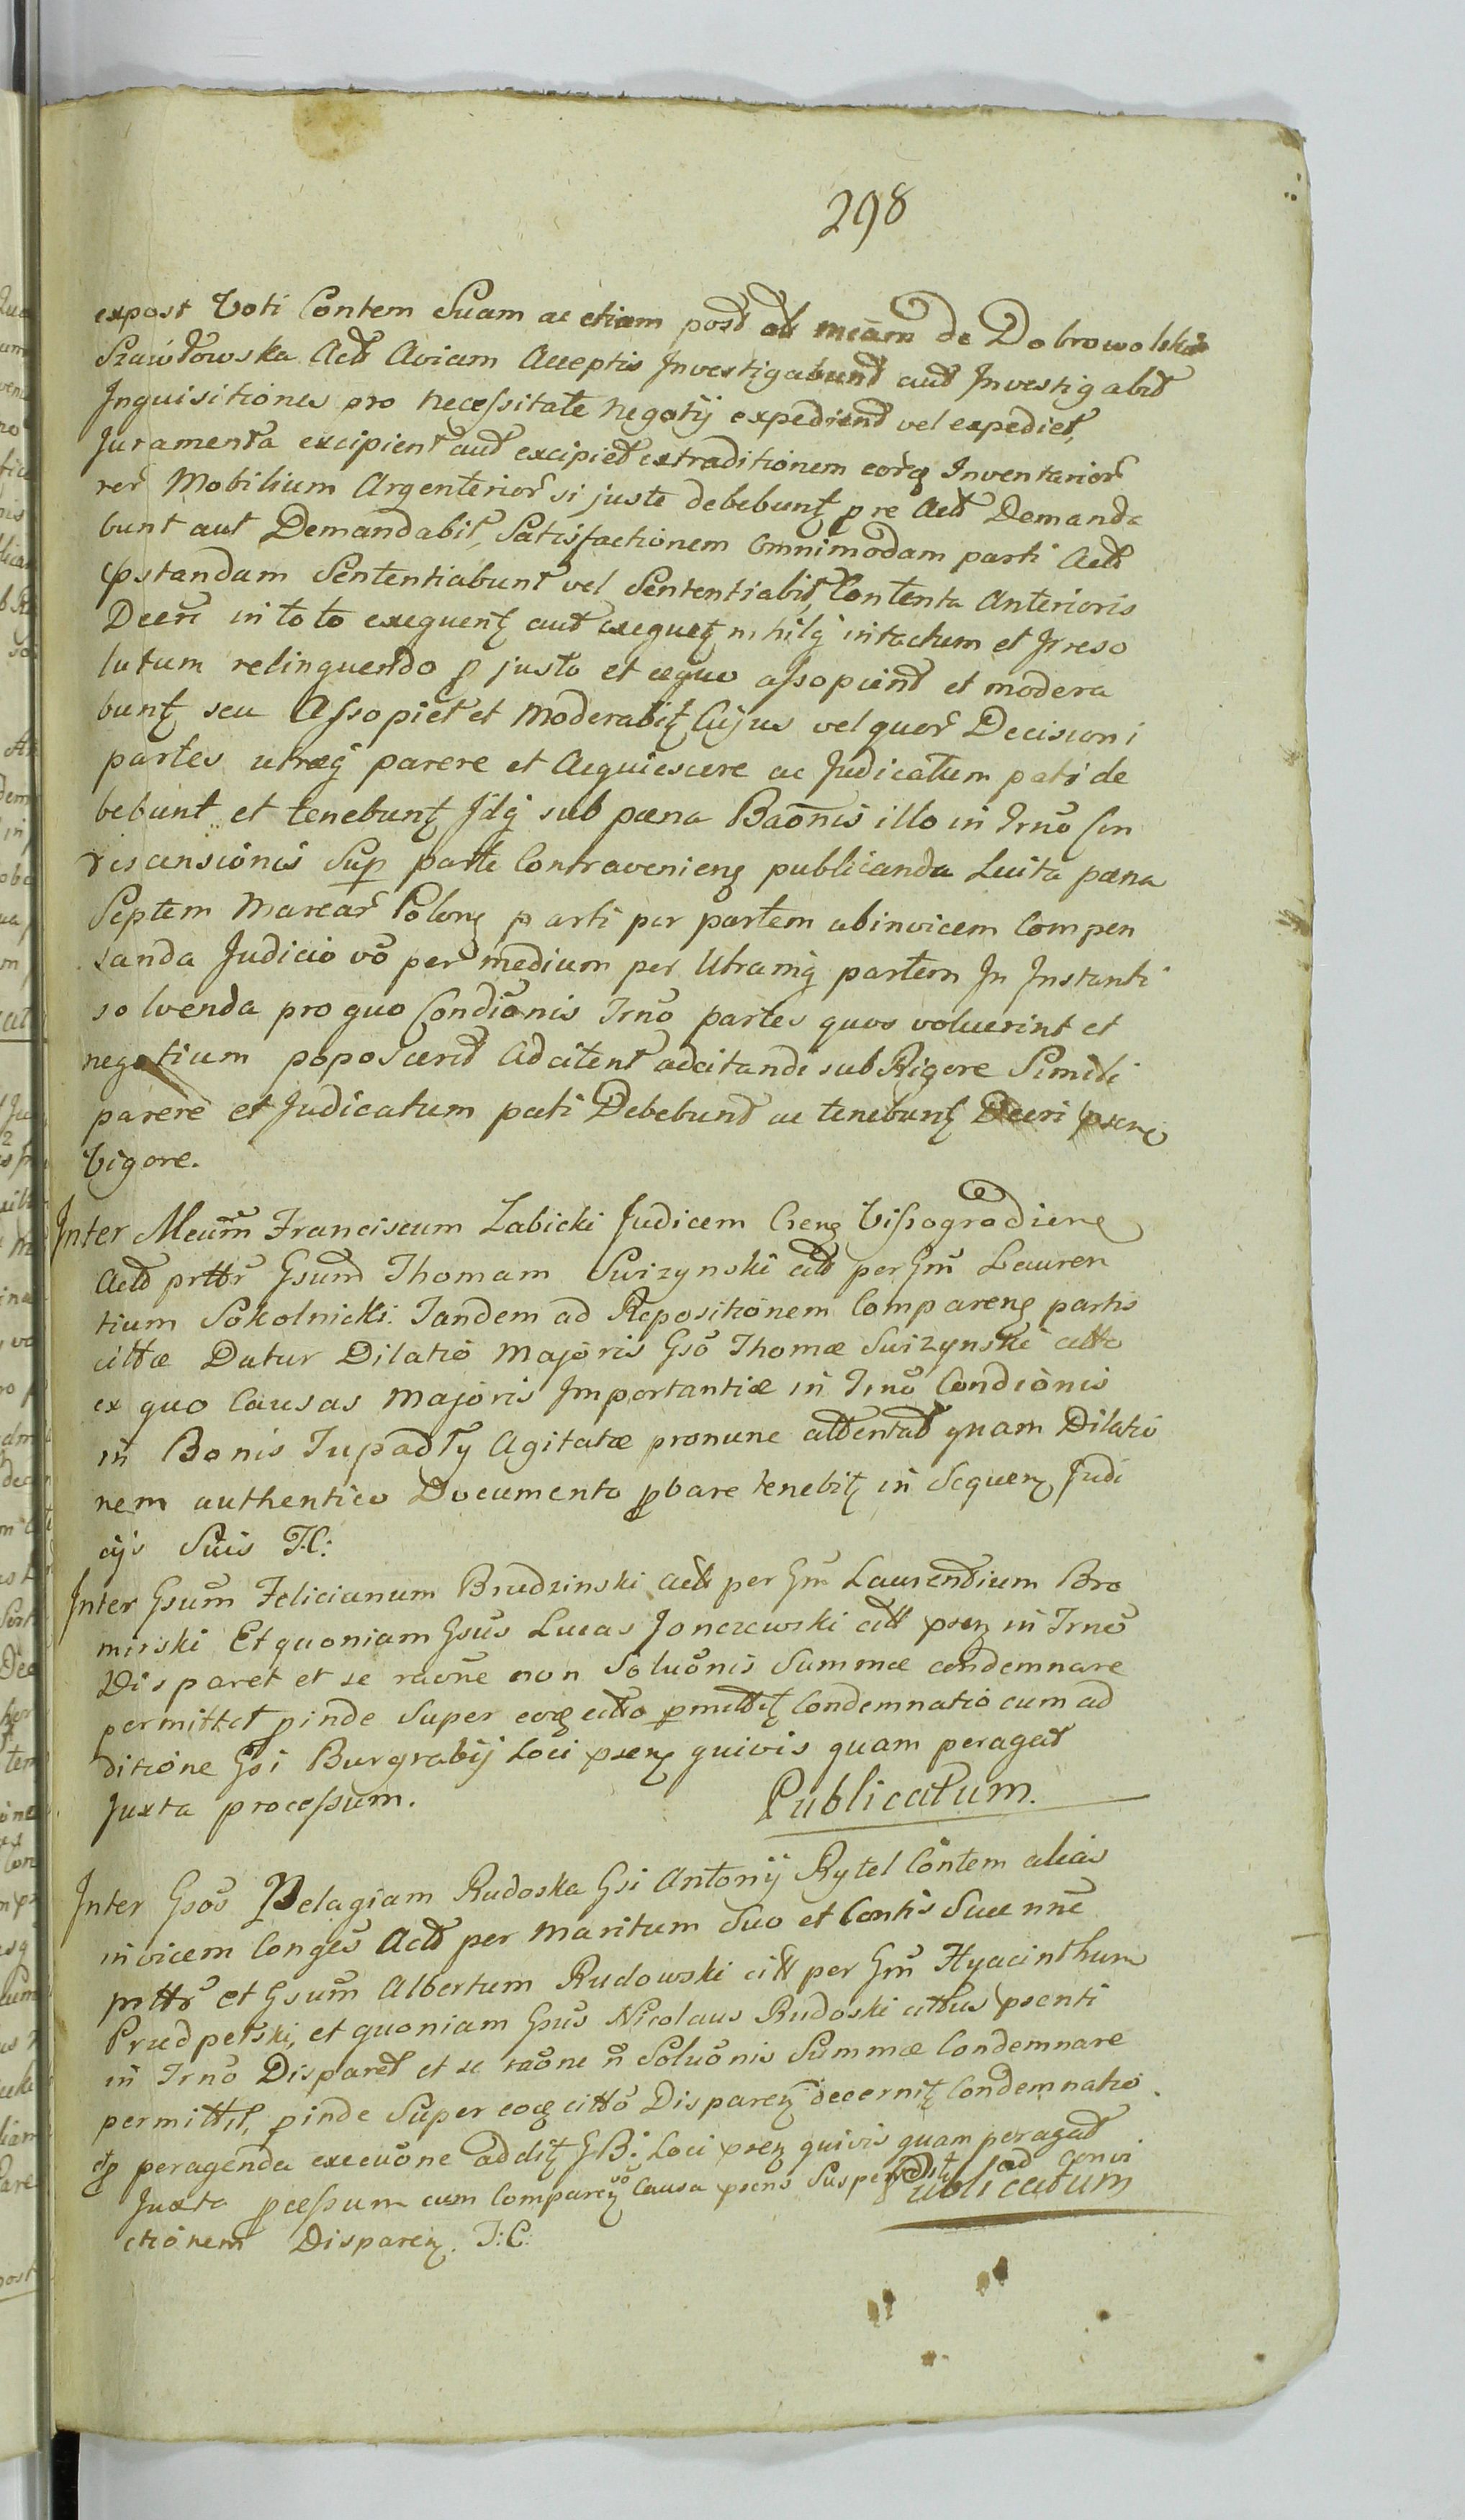 298
expost Voti Contem Suam ac etiam post ab meãm de Dobrowolskie
Szawłowska Actt Aviam Acceptis Investigabunt aut Investigabit
Inquisitiones pro necessitate negotij expedient vel expediet,
Juramenta excipient aut excipiet extraditionem eorq Inventarior
rer Mobilium Argenterior si juste debebunt p re Actt Demanda
bunt aut Demandabit, Satisfactionem Omnimodam parti Actt
pstandam Sententiabunt vel Sententiabit, Contenta Anterioris
Decri in toto exequent aut exequet nihilq intactum et Irreso
lutum relinquendo p justo et æquo assopient et modera
bunt seu Assopiet et Moderabit Cujus vel quor Decisioni
partes utræq parere et Acquiescere ac Judicatum pati de
bebunt et tenebunt Idq sub pæna Baõnis illo in Trnõ Con
descensionis Sup parte Contraveniens publicanda Luita pæna
Septem Marcar Polonq parti per partem abinvicem Compen
sanda Judicio võ per medium per Utramq partem In Instanti
solvenda pro quo Condiõnis Trnõ partes quos voluerint et
negotium poposcerit Adcitent adcitandi sub Rigore Simili
parere et Judicatum pati Debebunt ac tenebunt Decri psens
Vigore.
Inter Meum Franciscum Zabicki Judicem Crens Vissogradiens
Actt prttr Gsum Thomam Swizynski citt per Gm Lauren
tium Sokolnicki. Tandem ad Repositionem Comparens partis
cittæ Datur Dilatio Majoris Gso Thomæ Swizynski citto
ex quo Causas Majoris Importantiæ in Trnõ Condiõnis
in Bonis Tupadły Agitatæ pronunc attentat quam Dilatio
nem authentico Documento pbare tenebit in Sequen Judi
cijs Suis T.C:
Inter Gsum Felicianum Brudzinski Actt per Gm Laurentium Bro
mirski Et quoniam Gsus Lucas Jonczewski citt psen in Trnõ
Disparet et se raõne non Soluõnis Summæ condemnare
permittet pinde Super eoq citto pmittit Condemnatio cum ad
ditione Gsi Burgrabij Loci psens quivis quam peragat
Juxta processum.
Publicatum.
Inter Gsos Pelagiam Rudoska Gsi Antonij Rytel Contem alias
invicem Conges Actt per Maritum Suo et Contis Suæ nñe
prttr et Gsum Albertum Rudowski citt per Gm Hyacinthum
Przedpełski, et quoniam Gsus Nicolaus Rudoski cittus psenti
in Trnõ Disparet et se raõne ñ Soluõnis Summæ Condemnare
permittit, pinde Super eoq citto Disparen decernit Condemnatio
et p peragenda execuõne addit G B: Loci psen quivis quam peragat
Juxta pcessum cum Comparen võ Causa psens Suspendit ad Convi
ctionem Disparen. T: C:
Publicatum